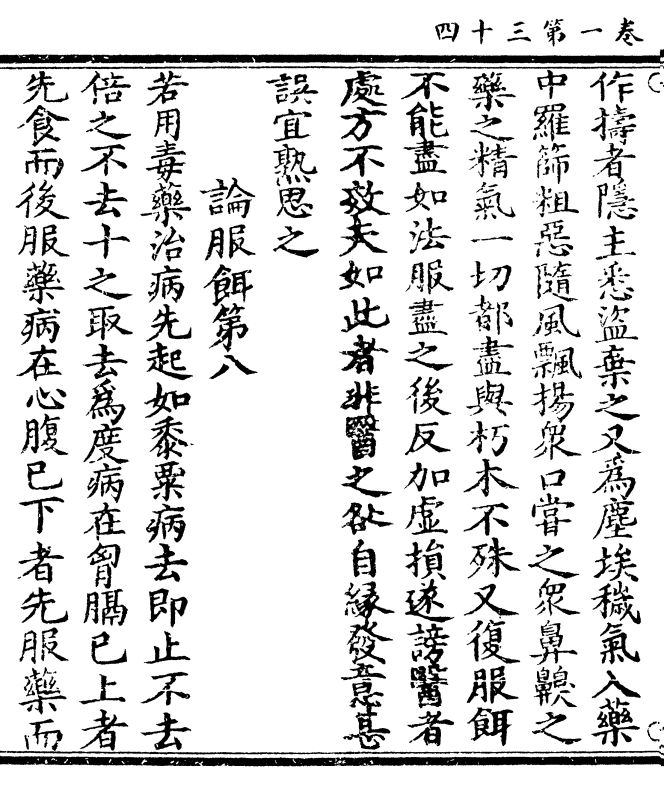 卷一第三十四
作擣者隱主悉盜棄之又爲塵埃穢氣入藥
中羅篩粗惡隨風飄揚衆口嘗之衆鼻齅之
藥之精氣一切都盡與朽木不殊又復服餌
不能盡如法服盡之後反加虛損遂謗醫者
處方不效夫如此者非醫之咎自緣發意甚
誤宜熟思之
論服餌第八
若用毒藥治病先起如黍粟病去即止不去
倍之不去十之取去爲度病在胷膈已上者
先食而後服藥病在心腹已下者先服藥而